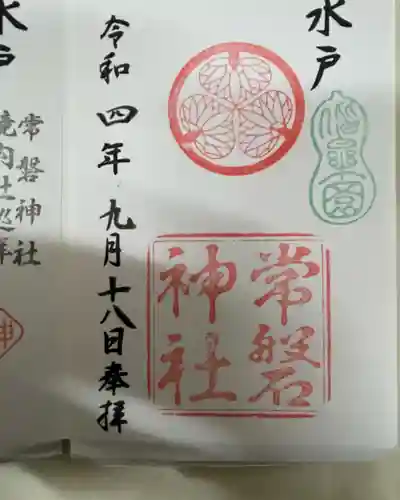 水戸
常磐
神社
令和四年九月十八日奉拝
水戸
常磐神社
境内社巡拝